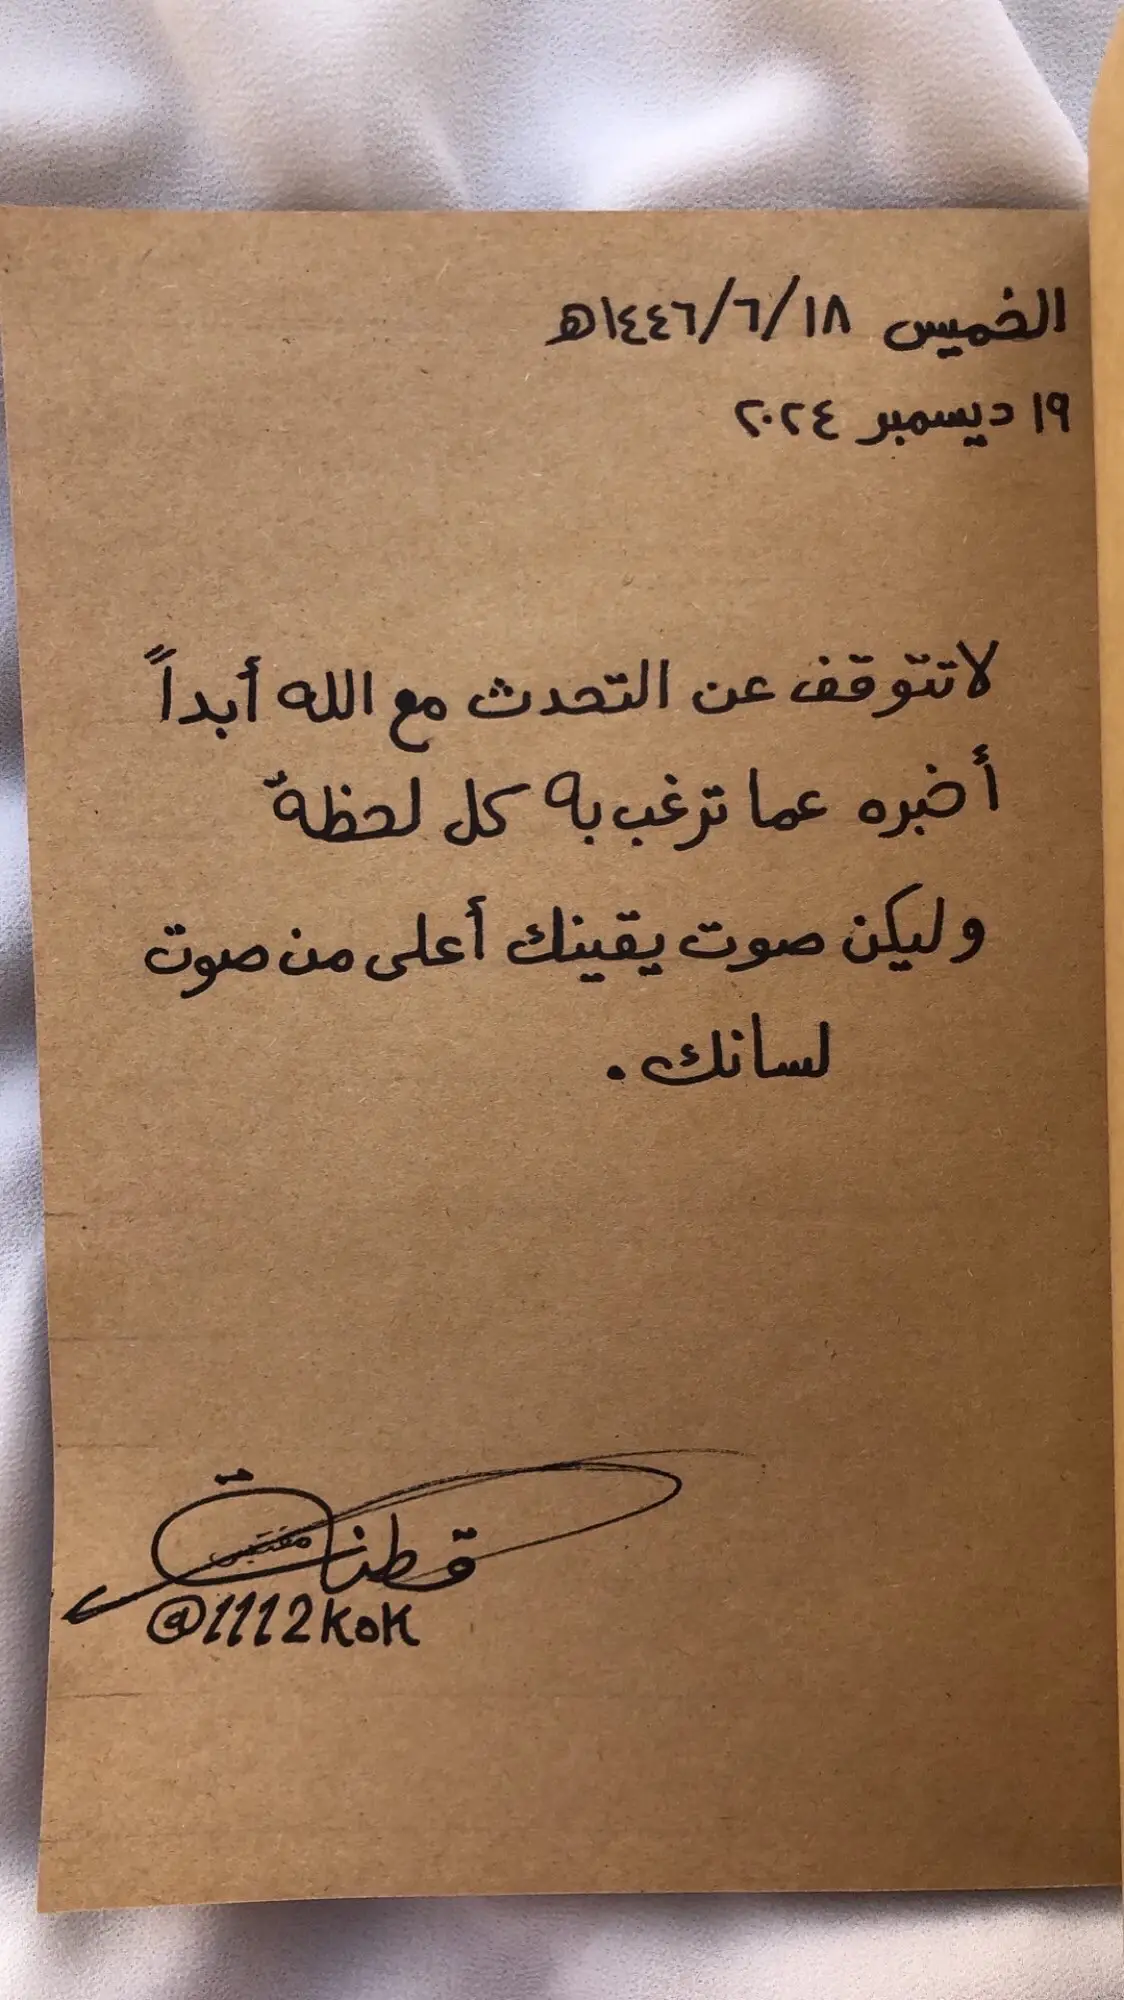 الخميس ١٨/٦/١٤٤٦ھ
١٩ ديسمبر ٢٠٢٤
لاتتوقف عن التحدث مع الله أبداً
أخبره عما ترغب به كل لحظة
وليكن صوت يقينك أعلى من صوت
لسانك.
مقتبس
@1112KoK